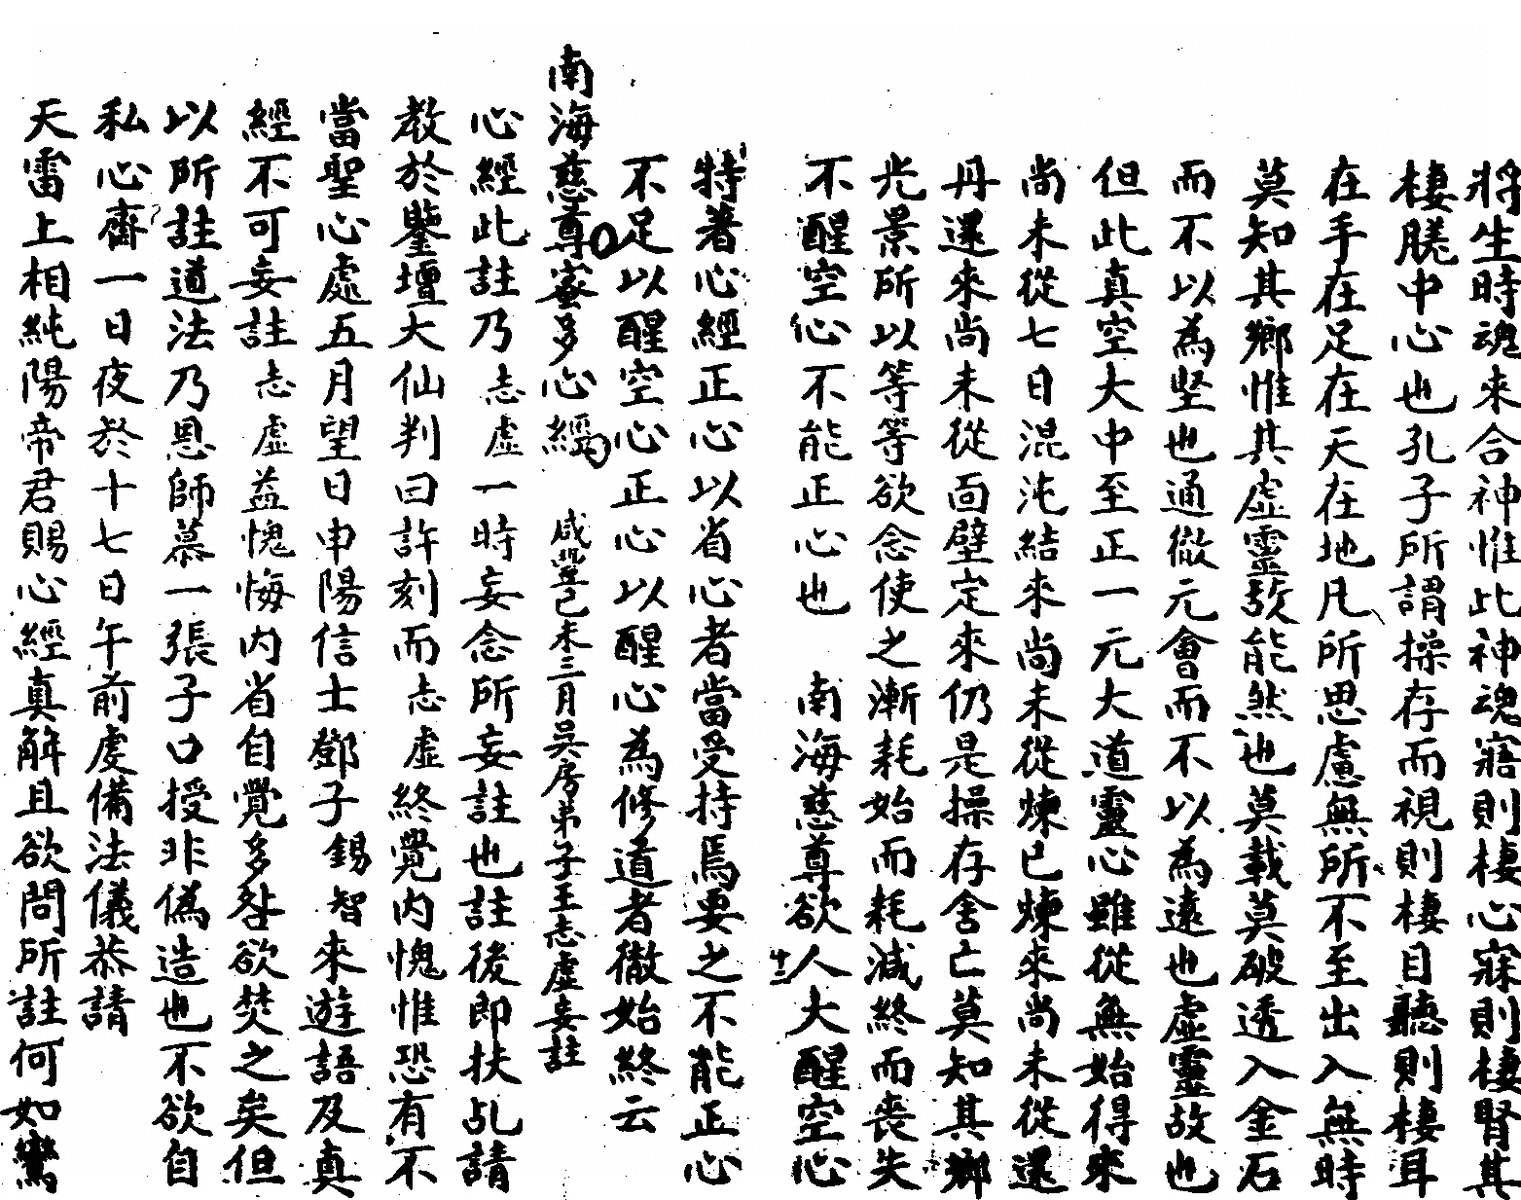 將生時魂來合神惟此神魂寤則棲心寐則棲腎其
棲膀中心也孔子所謂操存而視則棲目聽則棲耳
在手在足在天在地凡所思慮無所不至出入無時
莫知其鄉惟其虛靈故能然也莫載莫破透入金石
而不以為堅也通徹元會而不以為遠也虛靈故也
但此真空大中至正一元大道靈心雖從無始得來
尚未從七日混沌結來尚未從煉己煉來尚未從還
丹還來尚未從面壁定來仍是操存舍亡莫知其鄉
光景所以等等欲念使之漸耗始而耗減終而喪失
不醒空心不能正心也 南海慈尊欲人大醒空心
十二
特著心經正心以省心者當受持焉要之不能正心
不足以醒空心正心以醒心為修道者徹始終云
南海慈尊蜜多心經 咸豐己未三月吳房弟子王志虛妄註
心經此註乃志虛一時妄念所妄註也註後即扶乩請
教於鑒壇大仙判曰許刻而志虛終覺內愧惟恐有不
當聖心處五月望日申陽信士鄧子錫智來遊語及真
經不可妄註志虛益愧悔內省自覺多咎欲焚之矣但
以所註道法乃恩師慕一張子口授非偽造也不欲自
私心齋一日夜於十七日午前虔備法儀恭請
天雷上相純陽帝君賜心經真解且欲問所註何如鸞